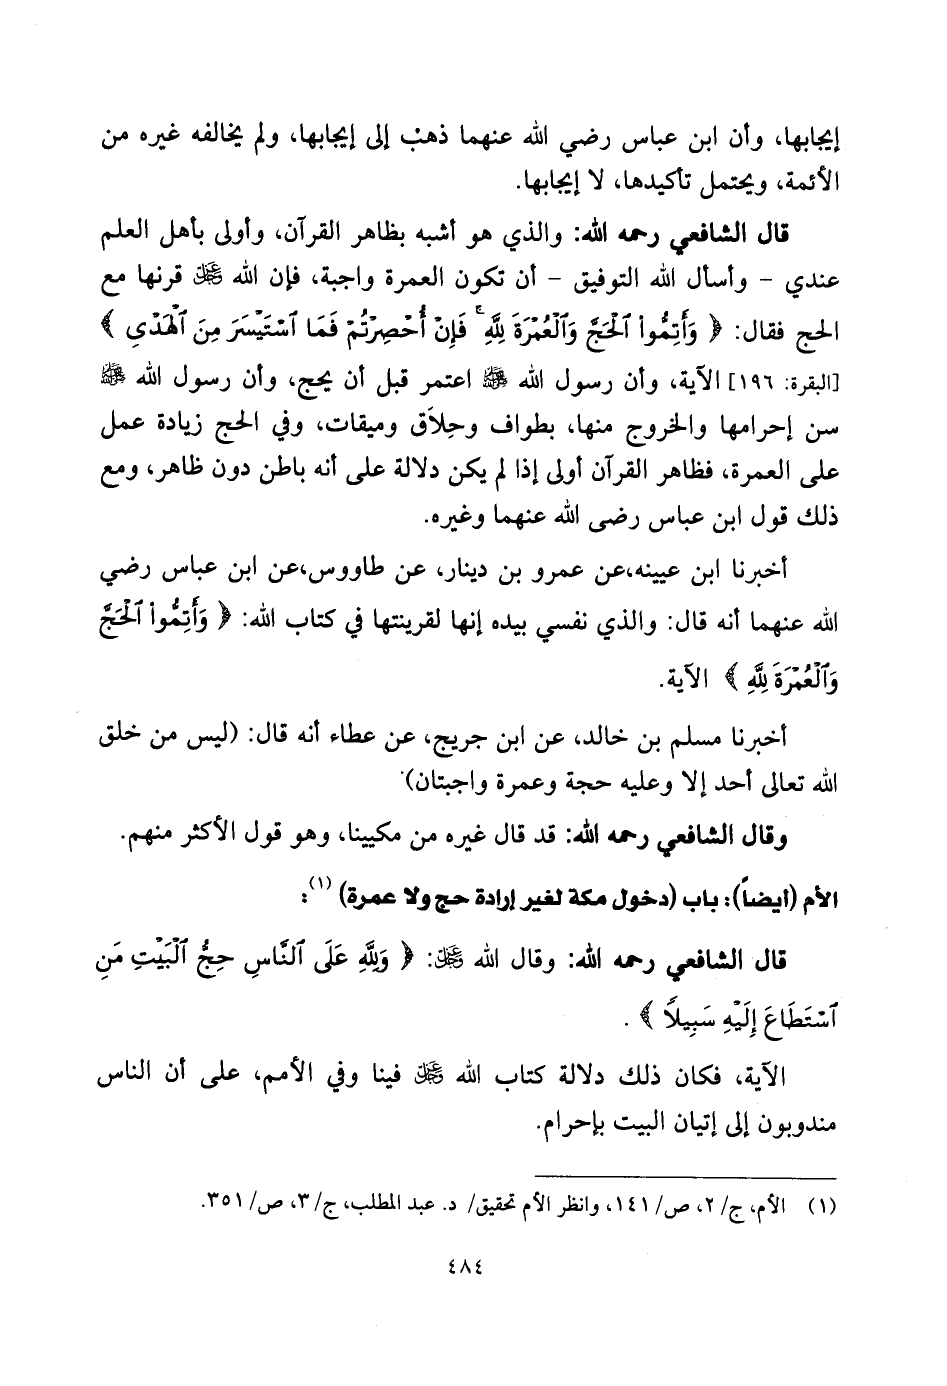 إيجابها، وأن ابن عباس رضي الله عنهما ذهب إلى إيجابها، ولم يخالفه غيره من
الأئمة، ويحتمل تأكيدها، لا إيجابها.
قال الشافعي رحمه الله: والذي هو أشبه بظاهر القرآن، وأولى بأهل العلم
عندي - وأسأل الله التوفيق - أن تكون العمرة واجبة، فإن الله عز وجل قرنها مع
الحج فقال: ﴿ وَأَتِمُّوا۟ ٱلْحَجَّ وَٱلْعُمْرَةَ لِلَّهِ ۚ فَإِنْ أُحْصِرْتُمْ فَمَا ٱسْتَيْسَرَ مِنَ ٱلْهَدْىِ ﴾
[البقرة: ١٩٦] الآية، وأن رسول الله ﷺ اعتمر قبل أن يحج، وأن رسول الله ﷺ
سن إحرامها والخروج منها، بطواف وحِلَاق وميقات، وفي الحج زيادة عمل
على العمرة، فظاهر القرآن أولى إذا لم يكن دلالة على أنه باطن دون ظاهر، ومع
ذلك قول ابن عباس رضى الله عنهما وغيره.
أخبرنا ابن عيينه،عن عمرو بن دينار، عن طاووس،عن ابن عباس رضي
الله عنهما أنه قال: والذي نفسي بيده إنها لقرينتها في كتاب الله: ﴿ وَأَتِمُّوا۟ ٱلْحَجَّ
وَٱلْعُمْرَةَ لِلَّهِ ﴾ الآية.
أخبرنا مسلم بن خالد، عن ابن جريج، عن عطاء أنه قال: (ليس من خلق
الله تعالى أحد إلا وعليه حجة وعمرة واجبتان)
وقال الشافعي رحمه الله: قد قال غيره من مكيينا، وهو قول الأكثر منهم.
الأم (أيضاً): باب (دخول مكة لغير إرادة حج ولا عمرة) (١):
قال الشافعي رحمه الله: وقال الله عز وجل: ﴿ وَلِلَّهِ عَلَى ٱلنَّاسِ حِجُّ ٱلْبَيْتِ مَنِ
ٱسْتَطَاعَ إِلَيْهِ سَبِيلًا ﴾ .
الآية، فكان ذلك دلالة كتاب الله عز وجل فينا وفي الأمم، على أن الناس
مندوبون إلى إتيان البيت بإحرام.
(١) الأم، ج/ ٢، ص/ ١٤١، وانظر الأم تحقيق/ د. عبد المطلب، ج/ ٣، ص/ ٣٥١.
٤٨٤